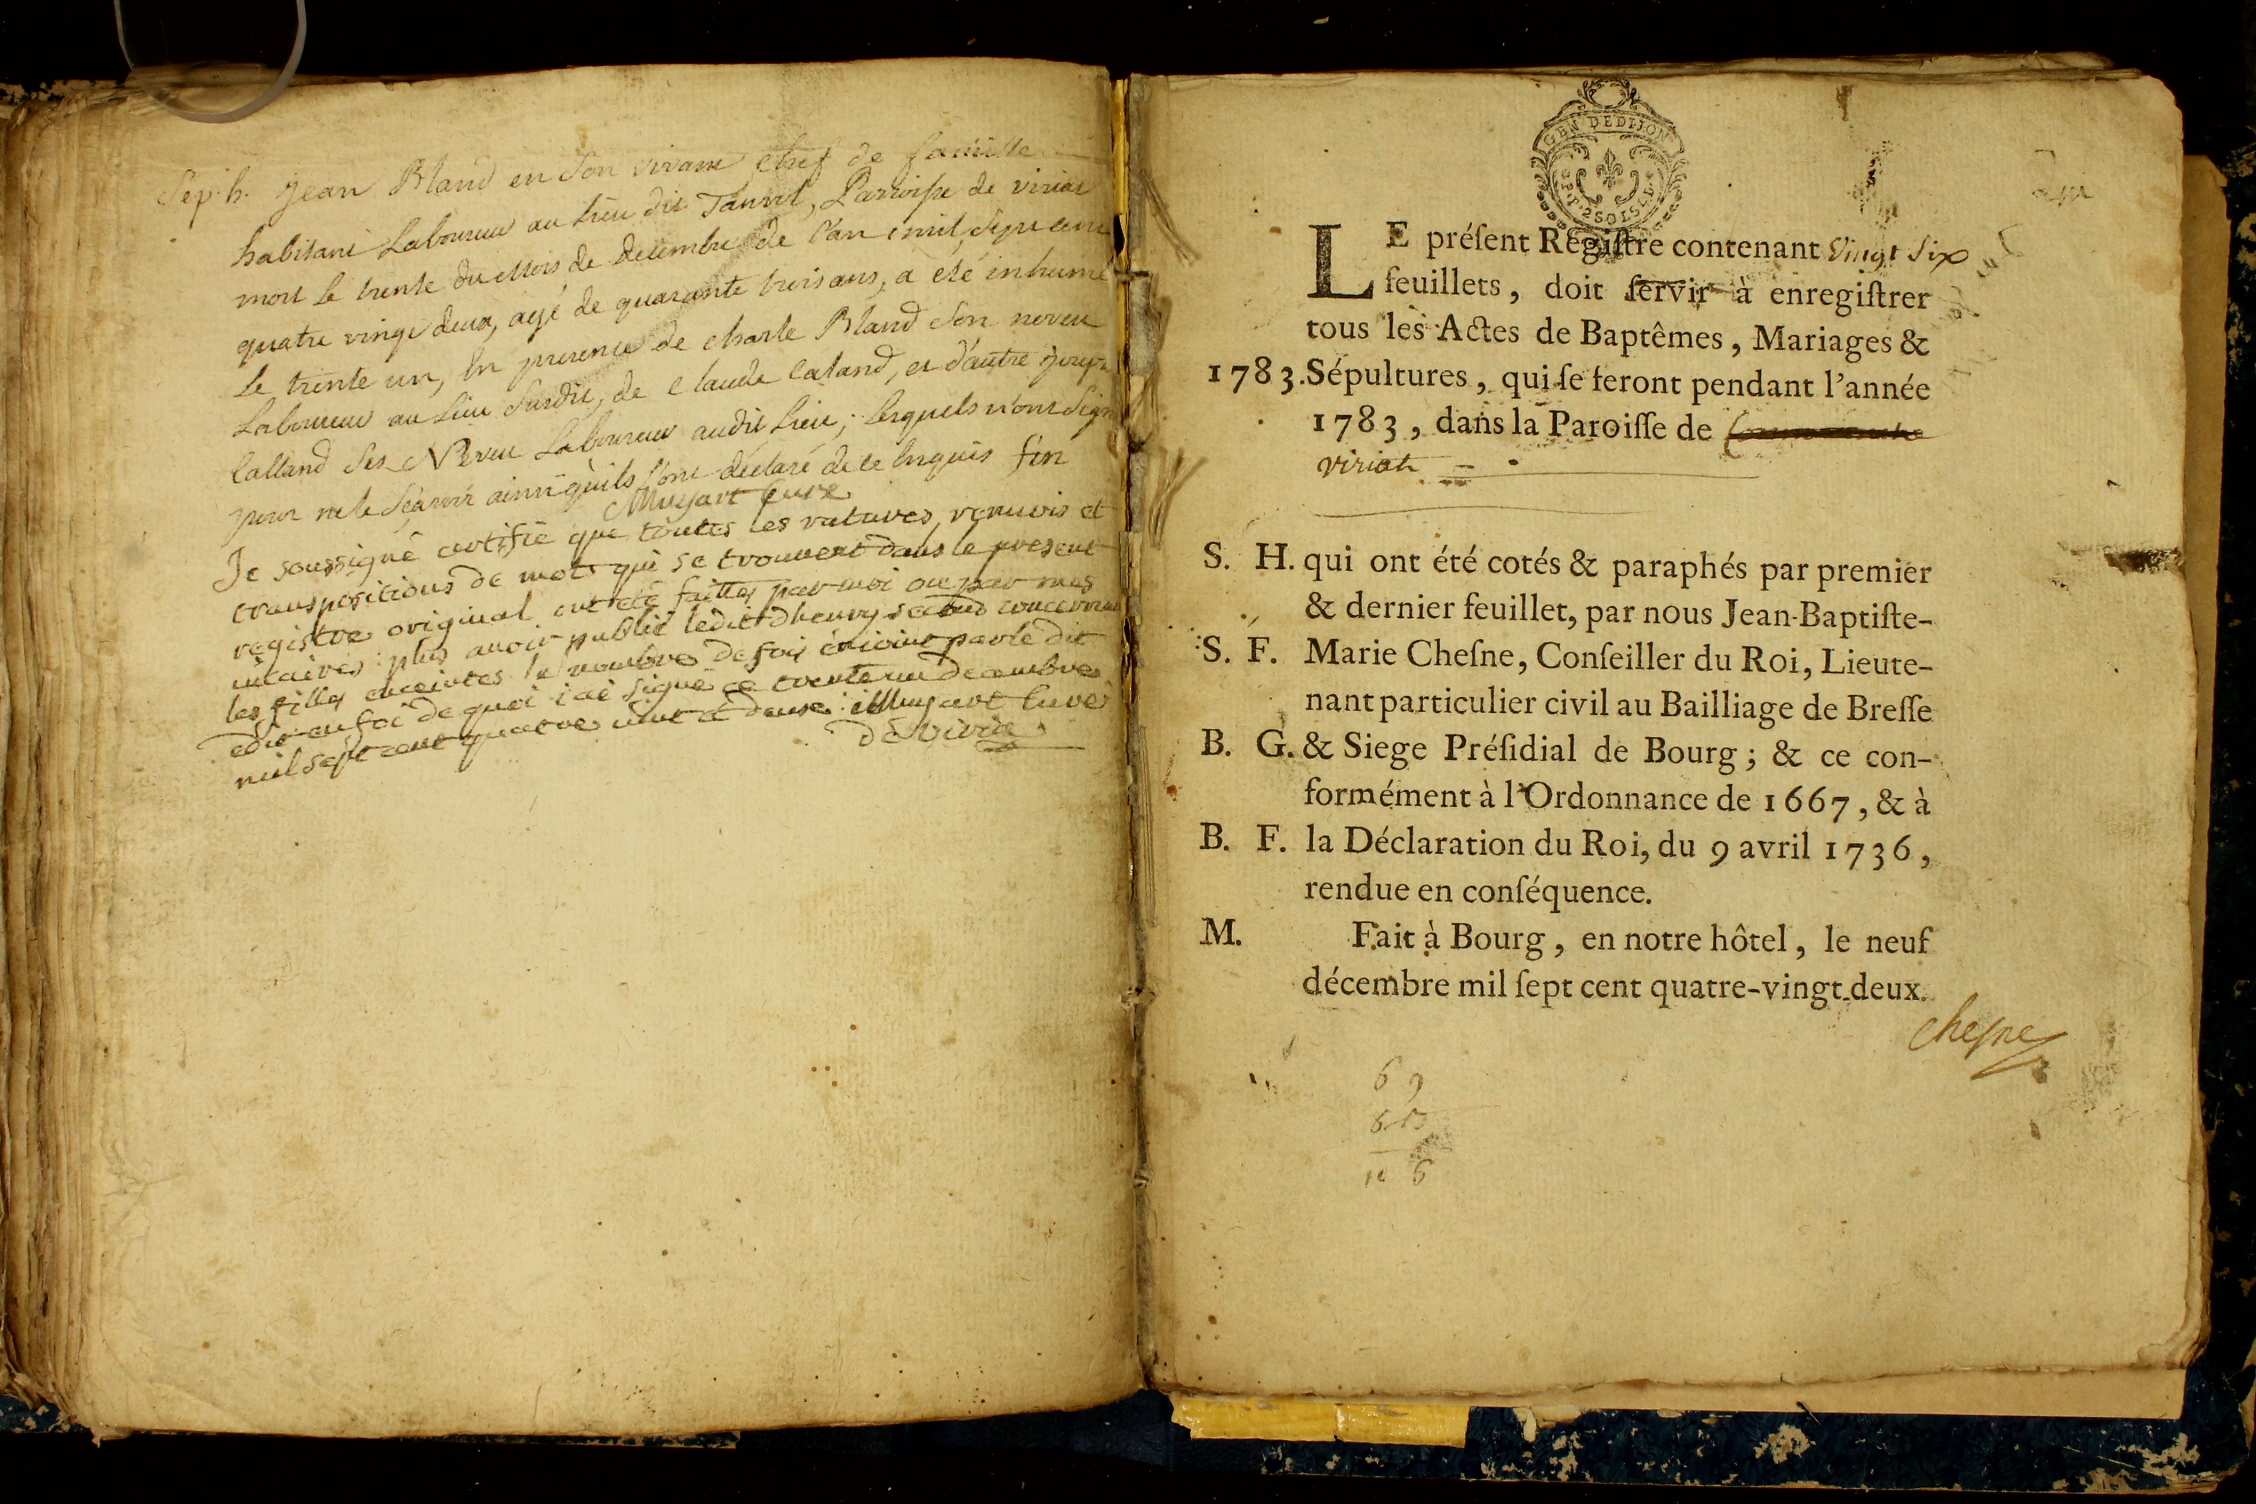 Sep. h. Jean Bland en son vivant chef de famille
habitant Laboureur au lieu dit Tanvol, Parroisse de viriat
mort le trente du mois de decembre de l'an mil sept cent
quatre vingt deux, agé de quarante trois ans, a été inhumé
le trente un, en presence de charle Bland son neveu
Laboureur au lieu susdit, de Claude Caland, et d'autre
Calland ses Neveu Laboureur audit lieu; lesquels n'ont signé
pour ne le sçavoir ainsi qu'ils l'ont déclaré de ce enquis fin
Muyart Curé
Je soussigné certifie que toutes les ratures, renuois et
transpositions de mots qui se trouvent dans le present
registre original ont été faittes par moi ou par mes
uicaires: plus auoir publié ledit dhenry second concernant
les filles enceintes le nombre de fois enioint par le dit
edit en foi de quoi j'ai signé ce trente un decembre
mil sept cent quatre uint et deux: Muyart Curé
de Viria
GEN DE DIJON
2 SOLS
LE préſent Regiſtre contenant vingt six
feuillets, doit ſervir à enregiſtrer
tous les Actes de Baptêmes, Mariages &
1783. Sépultures, qui ſe feront pendant l'année
1783, dans la Paroiſſe de
viriat
S. H. qui ont été cotés & paraphés par premier
& dernier feuillet, par nous Jean-Baptiſte-
S. F. Marie Cheſne, Conſeiller du Roi, Lieute-
nant particulier civil au Bailliage de Breſſe
B. G. & Siege Préſidial de Bourg; & ce con-
formément à l'Ordonnance de 1667, & à
B. F. la Déclaration du Roi, du 9 avril 1736,
rendue en conſéquence.
M. Fait à Bourg, en notre hôtel, le neuf
décembre mil ſept cent quatre-vingt-deux.
chesne
6 9